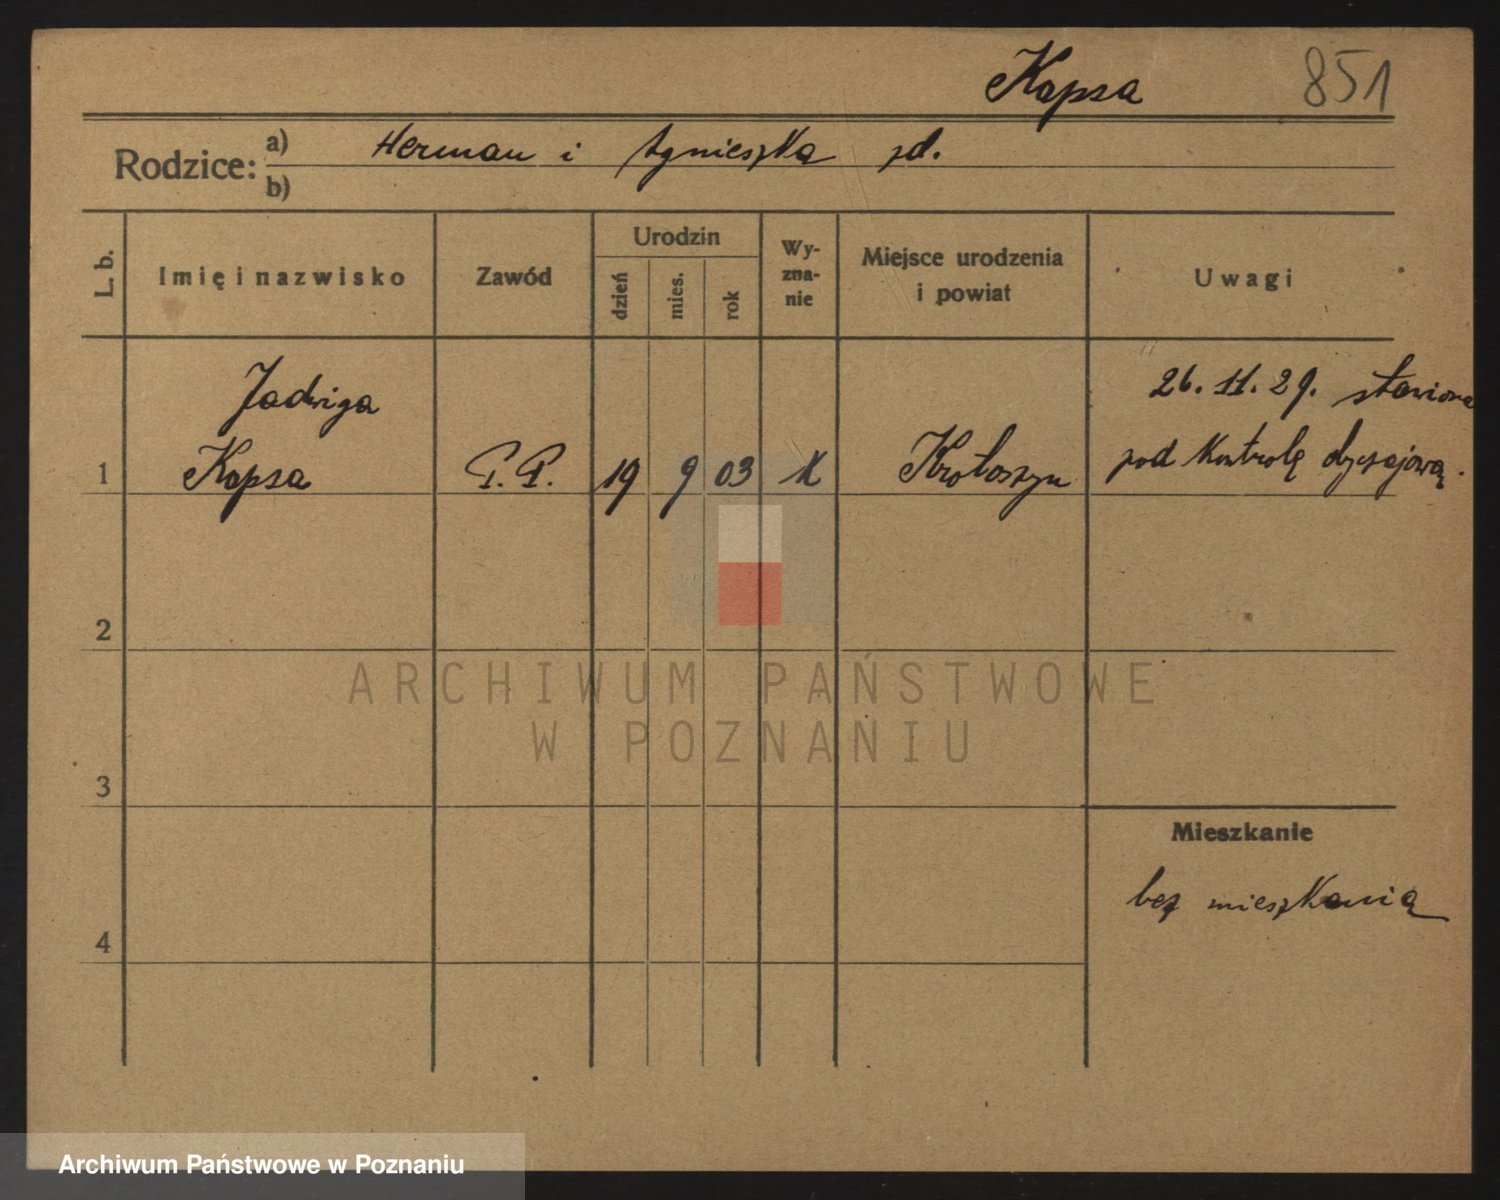 Kapsa 851
Rodzice: a) Herman i Agnieszka zd.
b)
L. b.
Imię i nazwisko
Zawód
Urodzin
dzień
mies.
rok
Wy-
zna-
nie
Miejsce urodzenia
i powiat
Uwagi
Jadwiga
1 Kapsa P.P. 19 9 03 K Krotoszyn
26.11.29. stawiona
pod kontrolę obyczajową.
2
3
4
Mieszkanie
bez mieszkania
ARCHIWUM PAŃSTWOWE
W POZNANIU
Archiwum Państwowe w Poznaniu